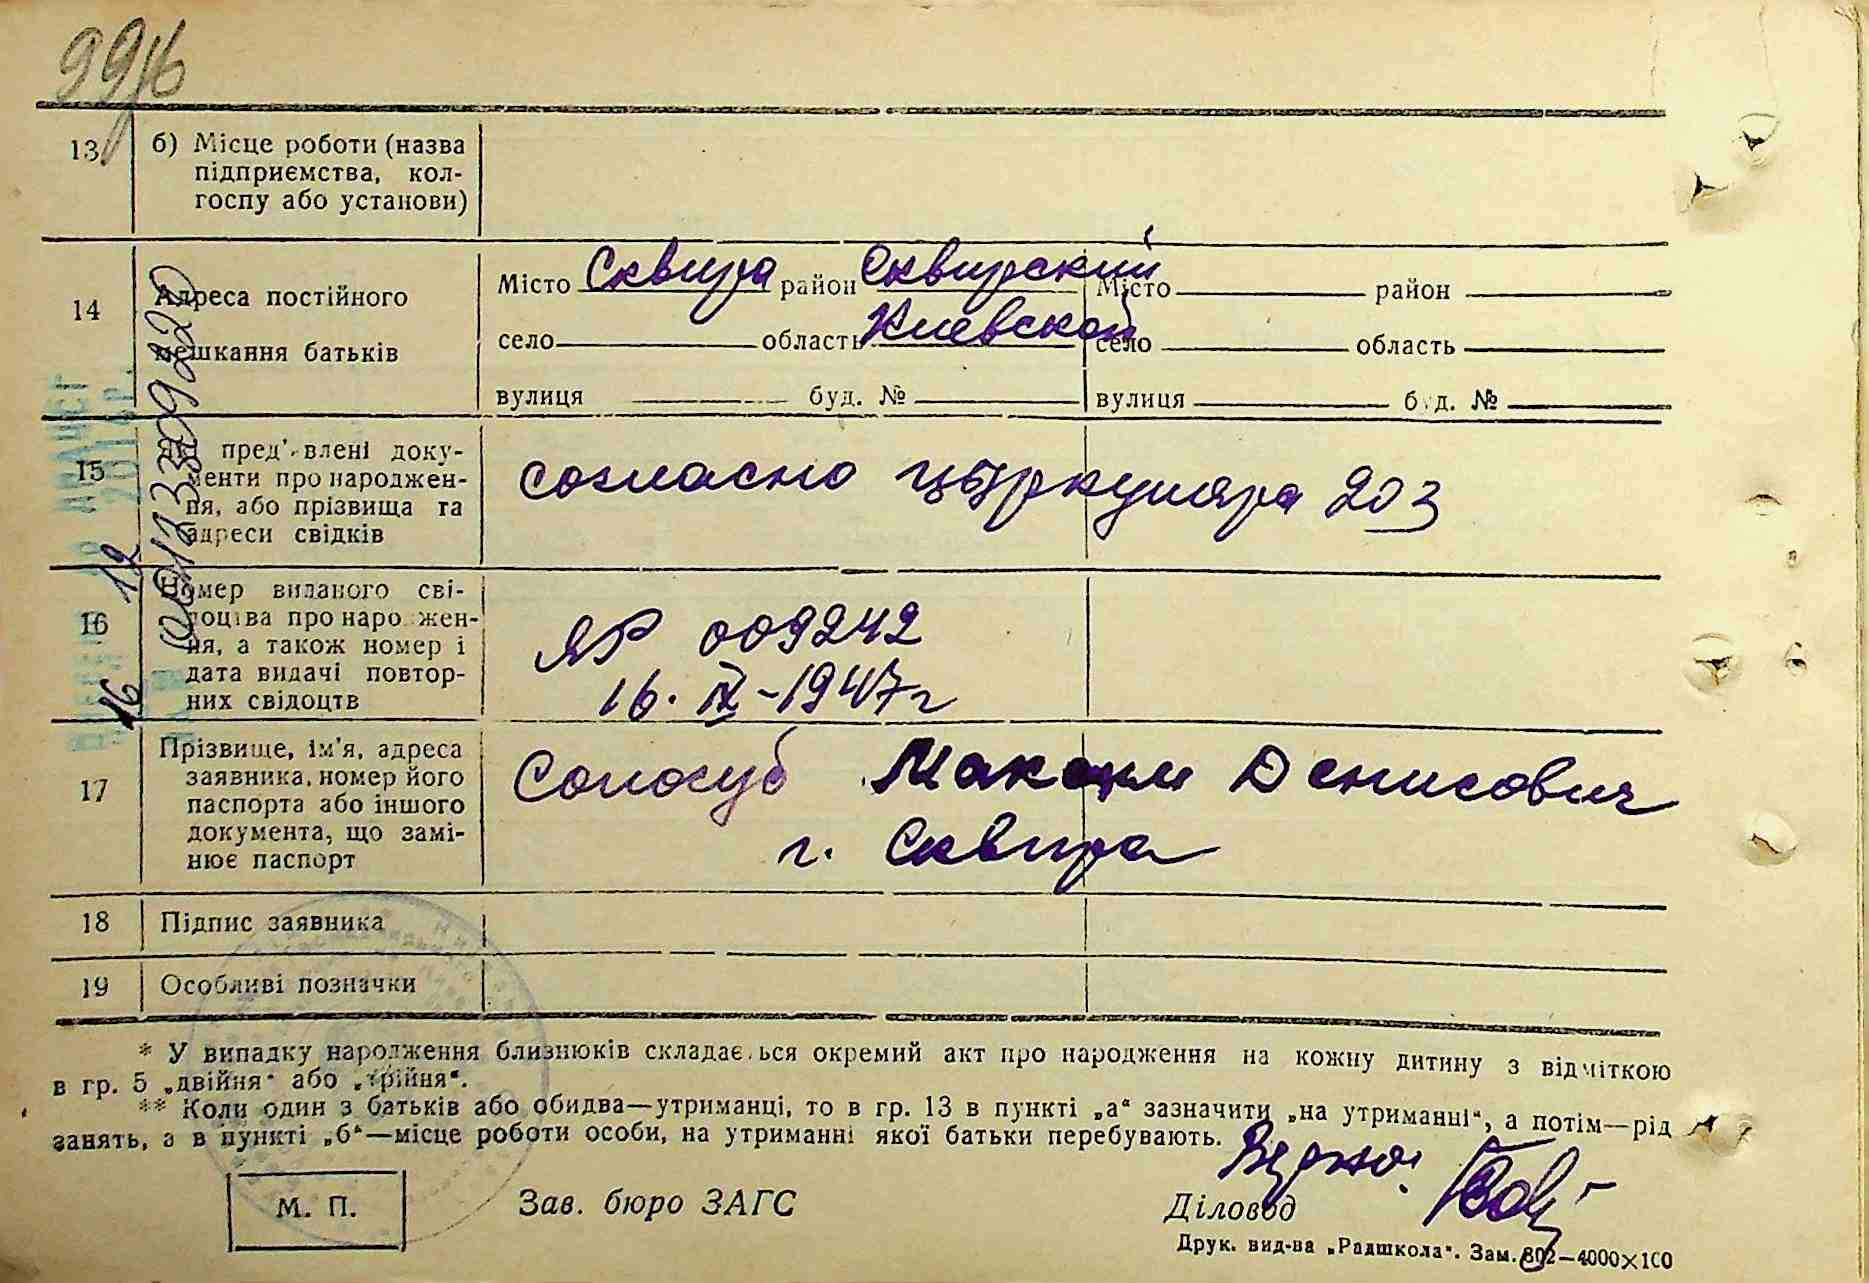 13 б) Місце роботи (назва
підприємства, кол-
госпу або установи)
14 Адреса постійного
мешкання батьків
Місто Сквира район Сквирский Місто район
село область Киевской село область
вулиця буд. № вулиця буд. №
15 пред'влені доку-
менти про народжен-
ня, або прізвища та
адреси свідків
согласно циркуляра 203
16 Номер виданого сві-
доцтва про народжен-
ня, а також номер і
дата видачі повтор-
них свідоцтв
ЯР 009242
16. IX-1947 г
17 Прізвище, ім'я, адреса
заявника, номер його
паспорта або іншого
документа, що замі-
нює паспорт
Сологуб Максим Денисович
г. Сквира
18 Підпис заявника
19 Особливі позначки
* У випадку народження близнюків складається окремий акт про народження на кожну дитину з відміткою
в гр. 5 „двійня" або „трійня".
** Коли один з батьків або обидва—утриманці, то в гр. 13 в пункті „а" зазначити „на утриманні", а потім—рід
занять, а в пункті „б"—місце роботи особи, на утриманні якої батьки перебувають.
Верно:
М. П. Зав. бюро ЗАГС Діловод
Друк. вид-ва „Радшкола". Зам. 802—4000×100